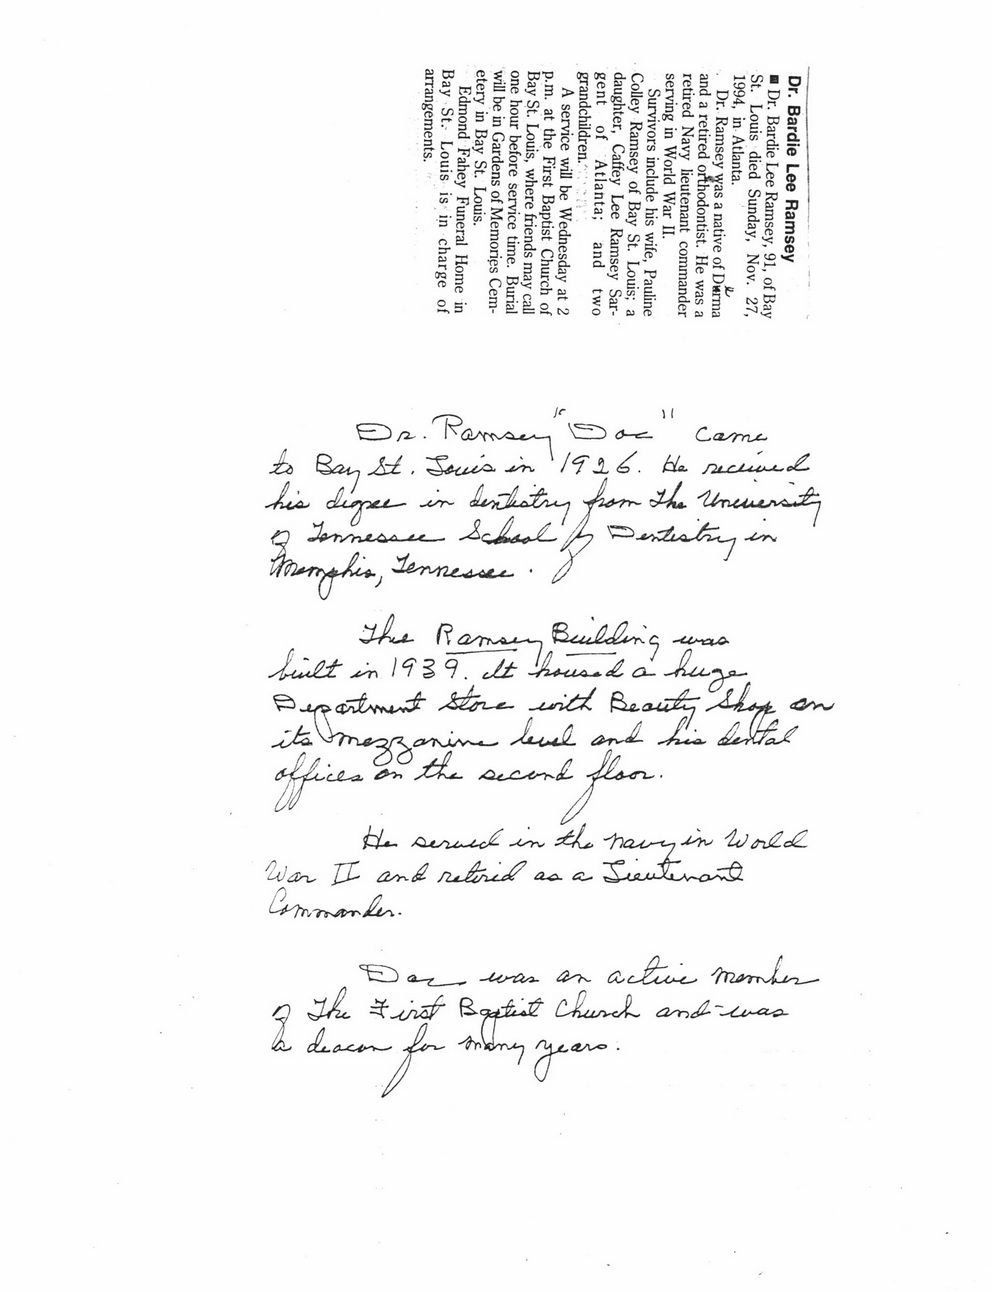 Dr. Bardie Lee Ramsey
■ Dr. Bardie Lee Ramsey, 91, of Bay
St. Louis died Sunday, Nov. 27,
1994, in Atlanta.
Dr. Ramsey was a native of Derma
and a retired orthodontist. He was a
retired Navy lieutenant commander
serving in World War II.
Survivors include his wife, Pauline
Colley Ramsey of Bay St. Louis; a
daughter, Caffey Lee Ramsey Sar-
gent of Atlanta; and two
grandchildren.
A service will be Wednesday at 2
p.m. at the First Baptist Church of
Bay St. Louis, where friends may call
one hour before service time. Burial
will be in Gardens of Memories Cem-
etery in Bay St. Louis.
Edmond Fahey Funeral Home in
Bay St. Louis is in charge of
arrangements.
Dr. Ramsey "Doc" came
to Bay St. Louis in 1926. He received
his degree in dentistry from the University
of Tennessee School of Dentistry in
Memphis, Tennessee.
The Ramsey Building was
built in 1939. It housed a huge
Department Store with Beauty Shop on
its mezzanine level and his dental
offices on the second floor.
He served in the navy in World
War II and retired as a Lieutenant
Commander.
Doc was an active member
of The First Baptist Church and was
a deacon for many years.